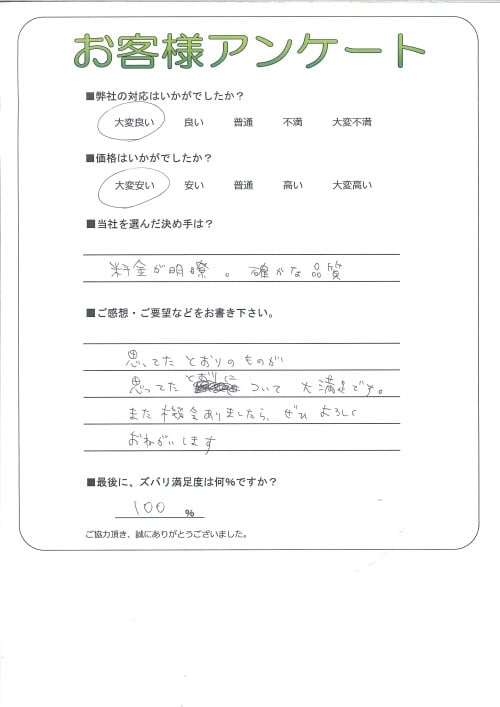 お客様アンケート
■弊社の対応はいかがでしたか？
大変良い 良い 普通 不満 大変不満
■価格はいかがでしたか？
大変安い 安い 普通 高い 大変高い
■当社を選んだ決め手は？
料金が明瞭。確かな品質
■ご感想・ご要望などをお書き下さい。
思ってたとおりのものが
思ってたとおりに ついて 大満足です。
また機会ありましたら、ぜひ よろしく
おねがいします
■最後に、ズバリ満足度は何％ですか？
100 ％
ご協力頂き、誠にありがとうございました。